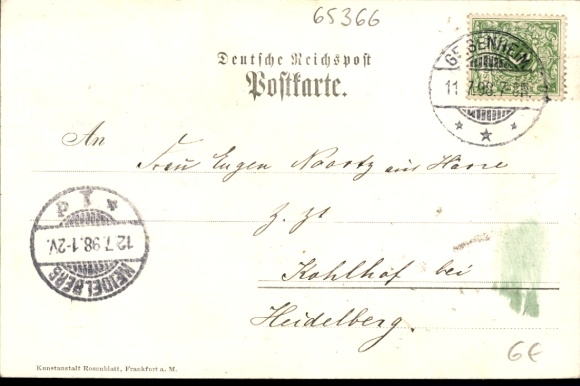 65366
Deutsche Reichspost
Postkarte.
GEISENHEIM
11.7.98.7-8N.
An
Frau Eugen
z. Zt
Kohlhof bei
Heidelberg.
P I *
12.7.98.1-2V.
HEIDELBERG
Kunstanstalt Rosenblatt, Frankfurt a. M.
6€